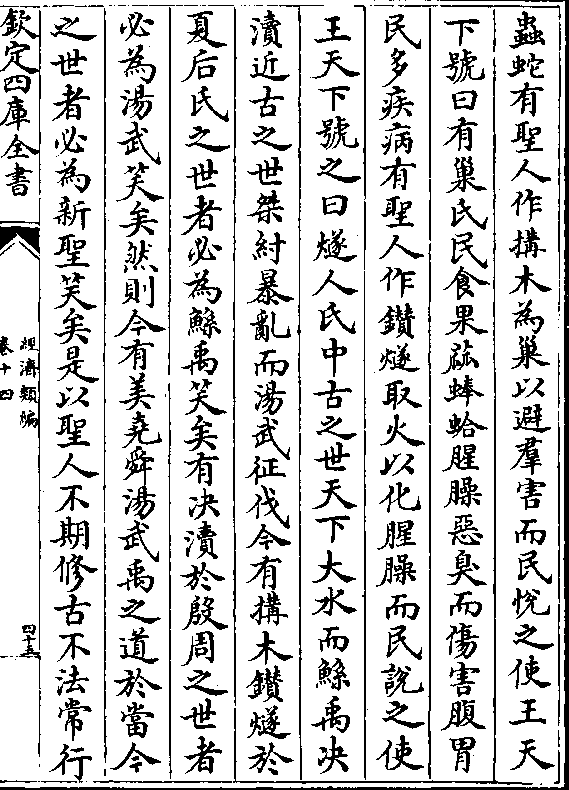 蟲蛇有聖人作搆木為巢以避羣害而民恱之使王天
下號曰有巢氏民食果蓏蜯蛤腥臊惡臭而傷害腹胃
民多疾病有聖人作鑚燧取火以化腥臊而民說之使
王天下號之曰燧人氏中古之世天下大水而鯀禹决
瀆近古之世桀紂暴亂而湯武征伐今有搆木鑚燧於
夏后氏之世者必為鯀禹笑矣有决瀆於殷周之世者
必為湯武笑矣然則今有美堯舜湯武禹之道於當今
之世者必為新聖笑矣是以聖人不期修古不法常行
欽定四庫全書
經濟類編
卷十四
四十五